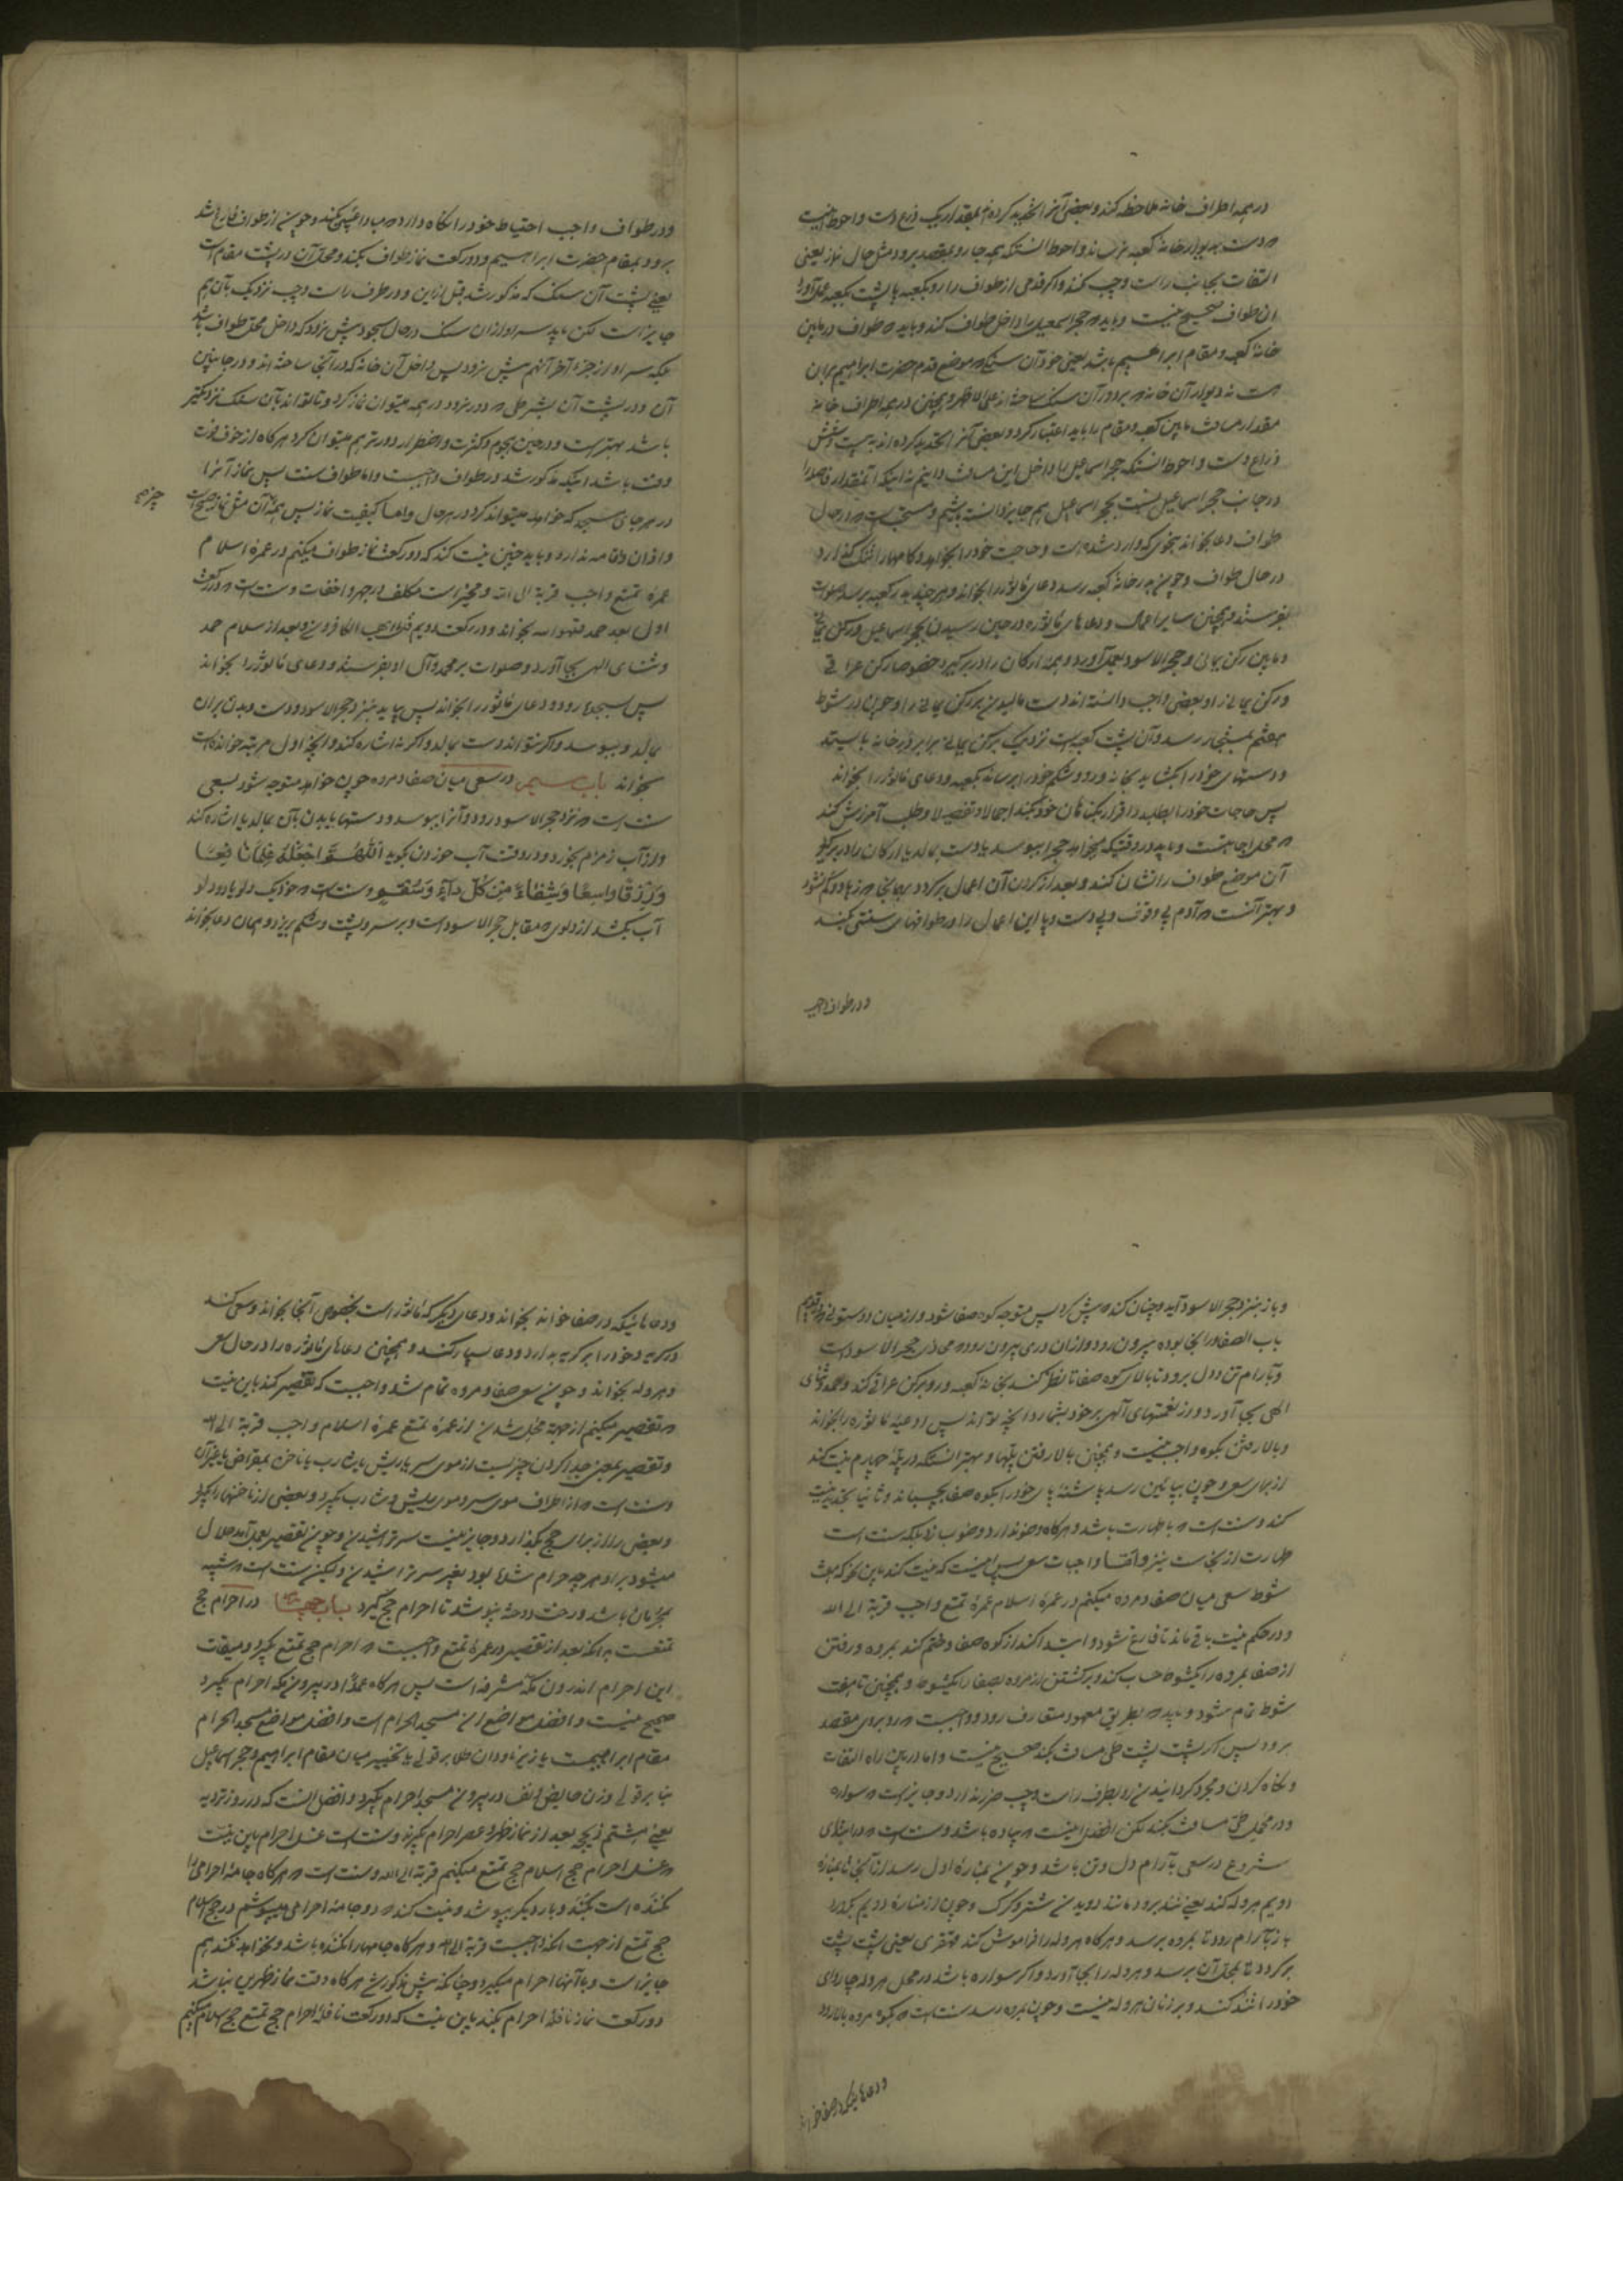 در همه اطراف خانه ملاحظه کند و بعضی آنرا تحدید کرده‌اند بمقدار یک ذرع دست و احوط اینست
که دست بدیوار خانه کعبه نرساند و احوط انستکه همه جا رو بمقصد برود مثل حال نماز یعنی
التفات بجانب راست و چپ نکند و اگر قدمی از طواف را رو بکعبه یا پشت بکعبه بعمل آورد
ان طواف صحیح نیست و باید که حجر اسمعیل را داخل طواف کند و باید که طواف در مابین
خانه کعبه و مقام ابراهیم باشد یعنی خود آن سنگ که موضع قدم حضرت ابراهیم بران
است نه دیوار آن خانه که بر دور آن سنگ ساخته‌اند علی الاظهر و همچنین در همه اطراف خانه
مقدار مسافت مابین کعبه و مقام را باید اعتبار کرد و بعضی آنرا تحدید کرده‌اند به بیست و شش
ذراع دست و احوط انستکه حجر اسماعیل را داخل این مسافت دانیم نه اینکه آنمقدار فاصله را
در جانب حجر اسماعیل نسبت بحجر اسماعیل هم جایز دانسته باشیم و مستحب است که در حال
طواف دعا بخواند بنحوی که وارد شده است و حاجت خود را بخواهد و کامها را تنک گذارد
در حال طواف و چون بدر خانه کعبه رسد دعای ماثور را بخواند و هر چند بدر کعبه برسد صلوات
بفرستد و همچنین سایر اعمال و دعاهای ماثوره در حین رسیدن بحجر اسماعیل و رکن یمانی
و مابین رکن یمانی و حجر الاسود بعمل آورد و همه ارکان را در بر گیرد خصوصا رکن عراقی
و رکن یمانی را و بعضی واجب دانسته‌اند دست مالیدن بر رکن یمانی را و چون در شوط
هفتم بمستجار رسد و آن پشت کعبه است نزدیک برکن یمانی برابر در خانه بایستد
و دستهای خود را بکشاید بخانه و رو و شکم خود را برساند بکعبه و دعای ماثور را بخواند
پس حاجات خود را بطلبد و اقرار بکناهان خود بکند اجمالا و تفصیلا و طلب آمرزش کند
که محل اجابتست و باید در وقتیکه میخواهد حجر را ببوسد یا دست بمالد یا ارکان را در بر گیرد
آن موضع طواف را نشان کند و بعد از کردن آن اعمال برگردد بهمانجا که زیاد و کم نشود
و بهتر آنست که آدم بی وقوف و بی دست و پا این اعمال را در طوافهای سنتی بکند
و در طواف واجب
و در طواف واجب احتیاط خود را نگاه دارد که مبادا پس و پیش کند و چون از طواف فارغ شد
برود بمقام حضرت ابراهیم و دو رکعت نماز طواف بکند و محل آن در پشت مقام است
یعنی پشت آن سنگ که مذکور شد قبل ازاین و در طرف راست و چپ نزدیک بآن هم
جایز است لکن باید سر او از ان سنگ در حال سجود پیش نرود که داخل محل طواف باشد
بلکه سر او از جزء آخر آنهم پیش نرود پس داخل آن خانه که در آنجا ساخته‌اند و در جانبین
آن و در پشت آن بشرطی که دور نرود در همه میتوان نماز کرد و تا تواند بآن سنگ نزدیکتر
باشد بهتر است و در حین هجوم و کثرت و اضطرار دورتر هم میتوان کرد هرگاه از خوف فوت
وقت باشد اینکه مذکور شد در طواف واجبست و اما طواف سنت پس نماز آنرا
در هر جای مسجد که خواهد میتواند کرد در هر حال و اما کیفیت نماز پس بهمان مثل نماز صبح است
جز همین
و اذان و اقامه ندارد و باید چنین نیت کند که دو رکعت نماز طواف میکنم در عمره اسلام
عمره تمتع واجب قربة الی الله و مخیر است مکلف در جهر و اخفات و سنت است که در رکعت
اول بعد حمد قل هو الله بخواند و در رکعت دویم قل یا ایها الکافرون و بعد از سلام حمد
و ثنای الهی بجا آورد و صلوات بر محمد و آل او بفرستد و دعای ماثور را بخواند
پس بسجده رود و دعای ماثور را بخواند پس بیاید بنزد حجر الاسود و دست و بدن بر ان
بمالد و ببوسد و اگر نتواند دست بمالد و اگر نه اشاره کند و آنچه اول مرتبه خوانده است
بخواند باب سیم در سعی میان صفا و مروه چون خواهد متوجه شود بسعی
سنت است که نزد حجر الاسود رود و آنرا ببوسد و دستها یا بدن بآن بمالد یا اشاره کند
و از آب زمزم بخورد و در وقت آب خوردن بگوید اَللّهُمَّ اجْعَلْهُ عِلْمًا نافِعًا
وَرِزْقًا واسِعًا وَشِفاءً مِنْ كُلِّ داءٍ وَسُقْمٍ و سنت است که خود یک دلو یا دو دلو
آب بکشد از دلوی که مقابل حجر الاسود است و بر سر و پشت و شکم بریزد و همان دعا بخواند
و باز بنزد حجر الاسود آید و چنان کند که پیش کرد پس متوجه کوه صفا شود و از میان دو ستونی که در قدیم
باب الصفا در انجا بوده بیرون رود و از ان دری بیرون رود که محاذی حجر الاسود است
و بآرام تن و دل برود تا بالای کوه صفا تا نظر کند بخانه کعبه و رو برکن عراقی کند و حمد و ثنای
الهی بجا آورد و از نعمتهای آلهی بر خود بشمارد آنچه تواند پس ادعیه ماثوره را بخواند
و بالا رفتن بکوه واجب نیست و همچنان بالا رفتن پلها و بهتر انستکه در پله چهارم نیت کند
از برای سعی و چون بپایین رسد پاشنه پای خود را بکوه صفا بچسباند و ثانیا تجدید نیت
کند و سنت است که با طهارت باشد و هرگاه وضو ندارد وضو بسازد بلکه سنت است
طهارت از نجاست نیز و اما واجبات سعی پس اینست که نیت کند باین نحو که هفت
شوط سعی میان صفا و مروه میکنم در عمره اسلام عمره تمتع واجب قربة الی الله
و در حکم نیت باقی ماند تا فارغ شود و ابتدا کند از کوه صفا و ختم کند بمروه و رفتن
از صفا بمروه را یکشوط حساب کند و برگشتن از مروه بصفا را یکشوط و همچنین تا هفت
شوط تمام شود و باید که بطریق معهود متعارف رود و واجبست که رو بروی مقصد
برود پس اگر پشت پشت طی مسافت بکند صحیح نیست و اما در بین راه التفات
و نگاه کردن و مجرد گردانیدن رو بطرف راست و چپ ضرر ندارد و جایز است که سواره
و در محمل طی مسافت بکند لکن افضل اینست که پیاده باشد و سنت است که در ابتدای
شروع در سعی بآرام دل و تن باشد و چون بمناره اول رسد از آنجا تا بمناره
دویم هروله کند یعنی تند برود مانند دویدن شتر و گرگ و چون از مناره دویم بگذرد
باز بآرام رود تا بمروه برسد و هرگاه هروله را فراموش کند قهقری یعنی پشت پشت
برگردد تا بمحل آن برسد و هروله را بجا آورد و اگر سواره باشد در محل هروله چارپای
خود را تند کند و بر زنان هروله نیست و چون بمروه رسد سنت است که بکوه مروه بالا رود
و دعاهائیکه در صفا خواند
و دعاهائیکه در صفا خواند بخواند و دعای دیگر که ماثور است بخصوص آنجا بخواند و سعی کند
در گریه و خود را بر گریه بدارد و دعا بسیار کند و همچنین دعاهای ماثوره را در حال سعی
و هروله بخواند و چون سعی صفا و مروه تمام شد واجبست که تقصیر کند باین نیت
که تقصیر میکنم از جهة محل شدن از عمره تمتع عمره اسلام واجب قربة الی الله
و تقصیر بمعنی جدا کردن چیزیست از موی سر یا ریش یا شارب یا ناخن بمقراض یا بغیر آن
و سنت است که از اطراف موی سر و موی ریش و شارب بگیرد و بعضی از ناخنها را بگیرد
و بعضی را از برای حج بگذارد و جایز نیست سر تراشیدن و چون تقصیر بعمل آمد حلال
میشود بر او هر چه حرام شده بود بغیر سر تراشیدن و لیکن سنت است که شبیه
بمحرمان باشد و رخت دوخته نپوشد تا احرام حج گیرد باب چهارم در احرام حج
تمتعست بدانکه بعد از تقصیر در عمره تمتع واجبست که احرام حج تمتع بگیرد و میقات
این احرام اندرون مکه مشرفه است پس هرگاه عمداً در بیرون مکه احرام بگیرد
صحیح نیست و افضل مواضع ان مسجد الحرام است و افضل مواضع مسجد الحرام
مقام ابراهیمست یا زیر ناودان طلا بر قولی یا تخییر میان مقام ابراهیم و حجر اسماعیل
بنا بر قولی و زن حایض در بیرون مسجد احرام بگیرد و افضل انست که در روز ترویه
یعنی هشتم ذیحجه بعد از نماز ظهر و عصر احرام بگیرند و سنت است غسل احرام باین نیت
که غسل احرام حج اسلام حج تمتع میکنم قربة الی الله و سنت است که هرگاه جامه احرامی را
نکنده است بکند و بار دیگر بپوشد و نیت کند که دو جامه احرامی میپوشم در حج اسلام
حج تمتع از جهت انکه واجبست قربة الی الله و هرگاه جامها را نکنده باشد و نخواهد بکند هم
جایز است و با آنها احرام میگیرد و چنانکه پیش مذکور شد هرگاه وقت نماز ظهرین نباشد
دو رکعت نماز نافله احرام بکند باین نیت که دو رکعت نافله احرام حج تمتع حج اسلام میکنم